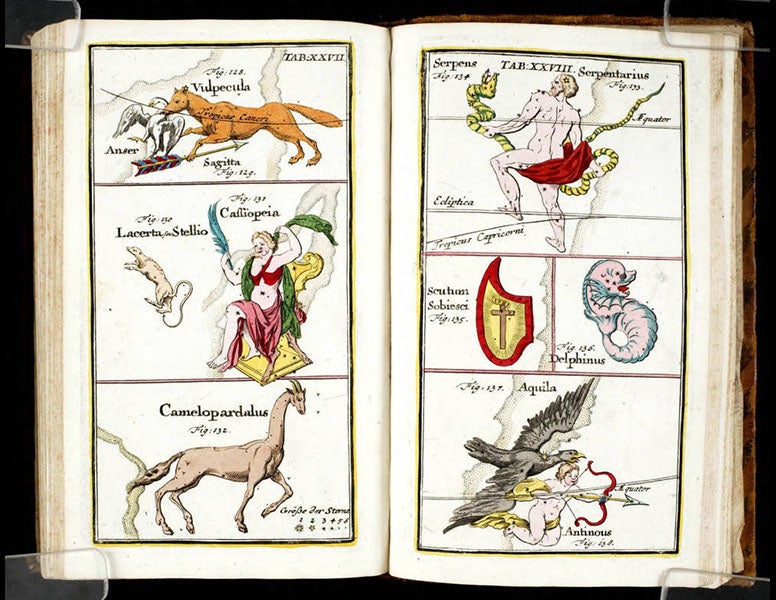 TAB:XXVII
Fig: 128.
Vulpecula
Tropicus Cancri
Anser
Sagitta
Fig: 129.
Fig: 130
Lacerta seu Stellio
Fig: 131
Cassiopeia
Camelopardalus
Fig: 132.
Größe der Sterne
1 2 3 4 5 6
TAB: XXVIII.
Serpens
Fig: 134
Serpentarius
Fig: 133.
Æquator
Ecliptica
Tropicus Capricorni
Scutum
Sobiesci
Fig: 135.
Fig: 136.
Delphinus
Fig: 137.
Aquila
Æquator
Antinous
Fig: 138.